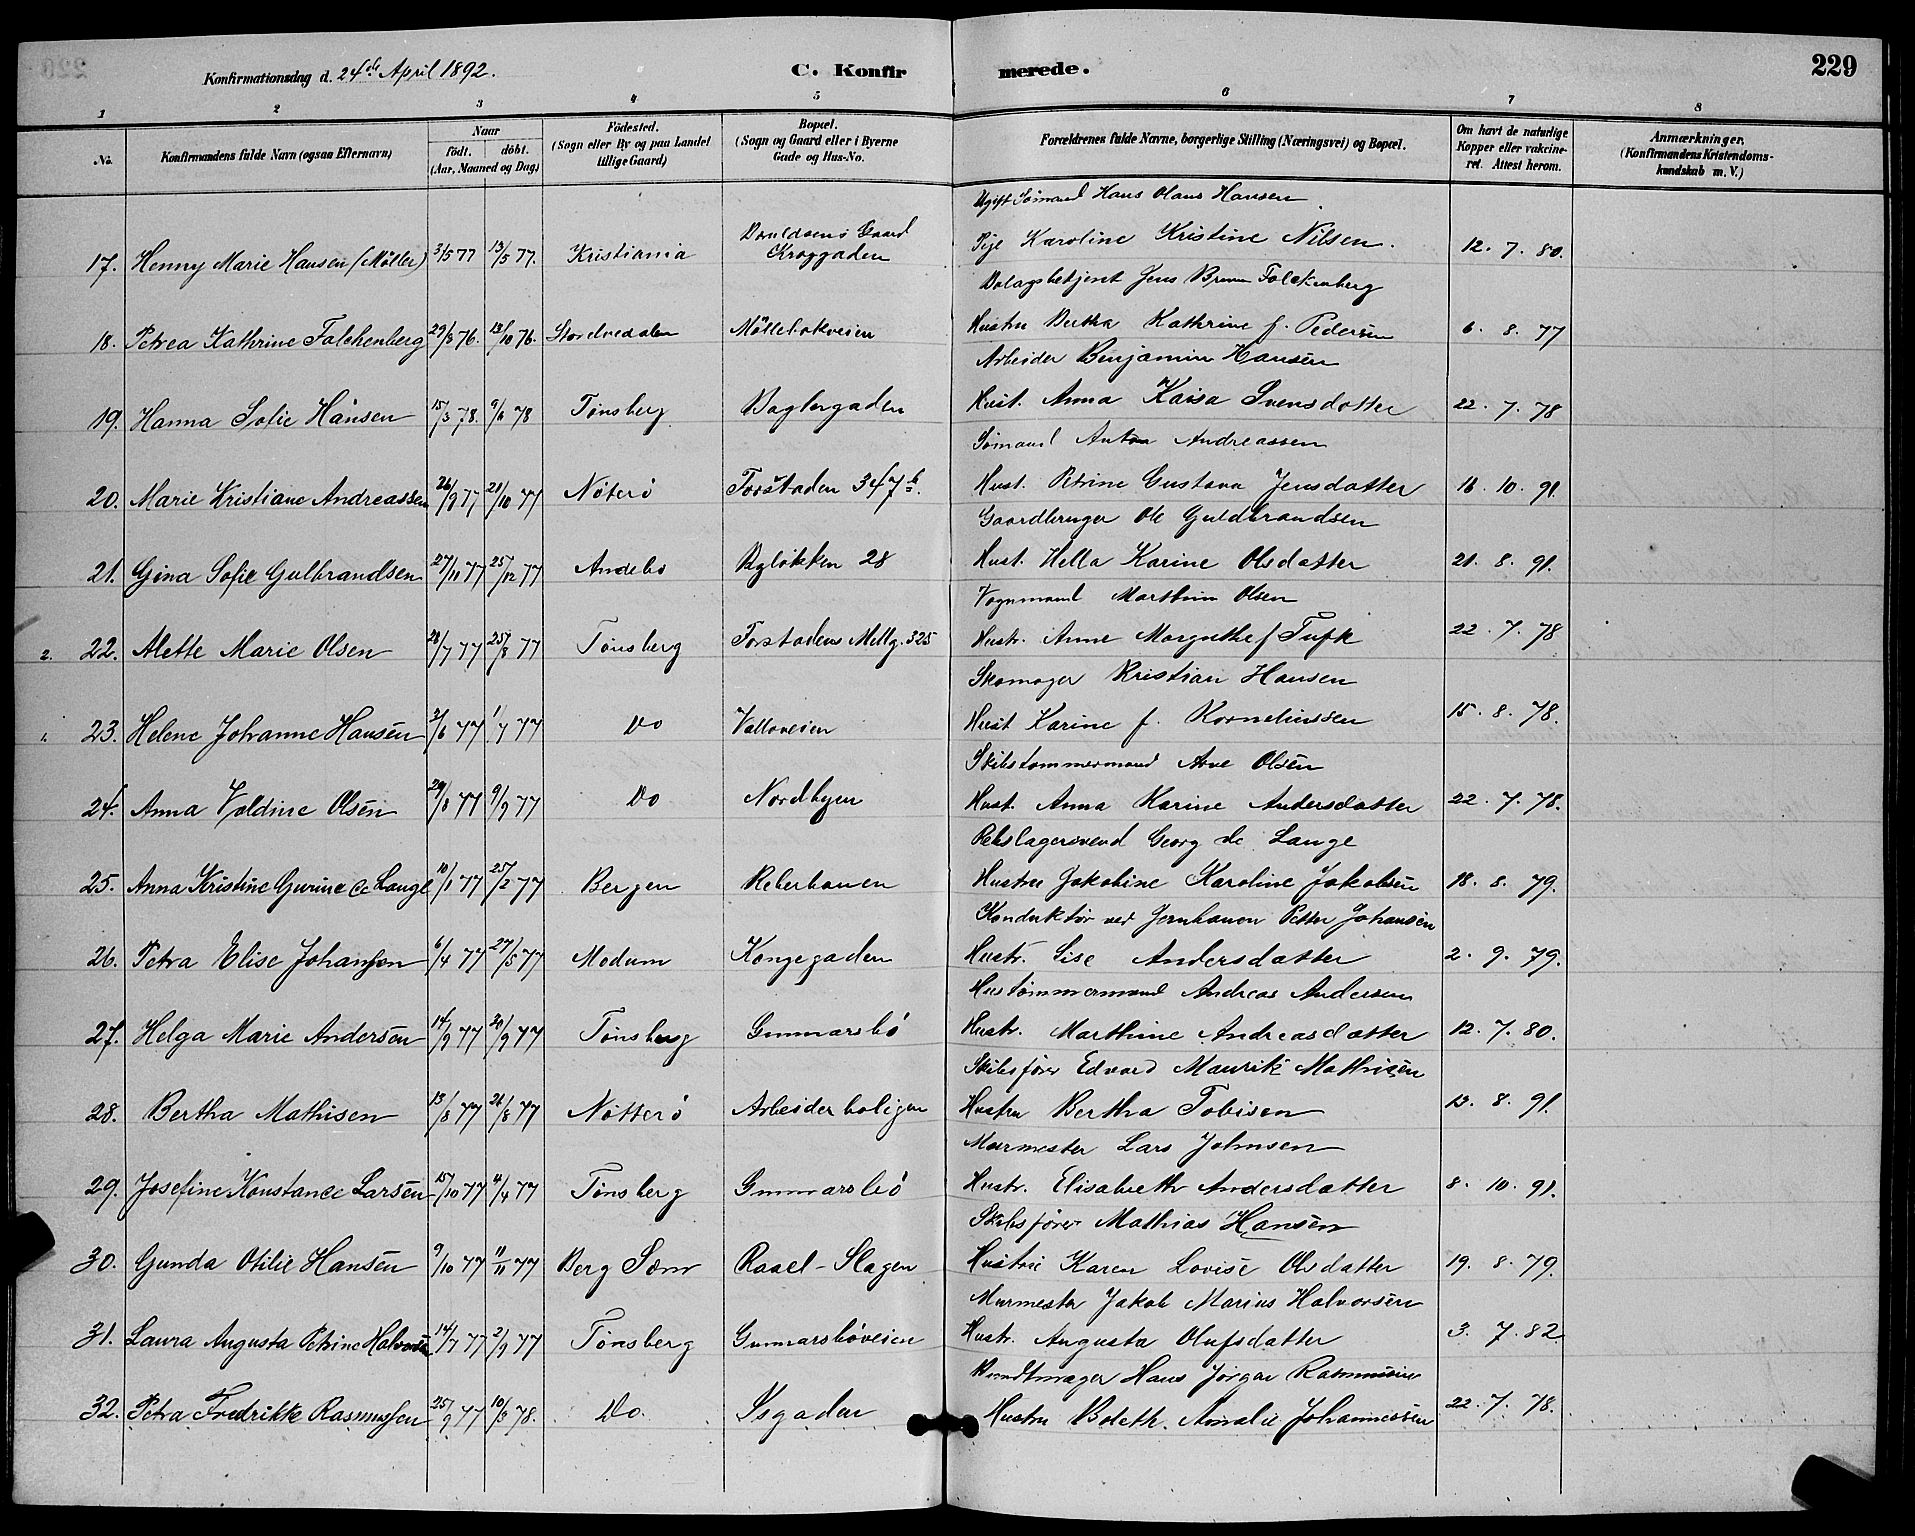 Konfirmationsdag d. 24de April 1892. C. Konfirmerede. 229
1 2 3 4 5 6 7 8
No. Konfirmandens fulde Navn (ogsaa Efternavn) Naar födt. döbt. (Aar, Maaned og Dag) Födested. (Sogn eller By og paa Landet tillige Gaard) Bopæl. (Sogn og Gaard eller i Byerne Gade og Hus-No. Forældrenes fulde Navne, borgerlige Stilling (Næringsvei) og Bopæl. Om havt de naturlige Kopper eller vakcineret. Attest herom. Anmærkninger. (Konfirmandens Kristendomskundskab m. V.)
Ugift Sømand Hans Olaus Hansen
17. Henny Marie Hansen (Möller) 3/5 77 13/5 77. Kristiania Gaard Kroggaden Pige Karoline Kristine Nilsen. 12. 7. 80.
Jens Falckenberg
18. Petrea Kathrine Falchenberg 29/8 76. 13/10 76. Möllebakveien Hustru Bertha Kathrine f. Pedersen 6. 8. 77
Arbeider Benjamin Hansen
19. Hanna Sofie Hansen 15/3 78. 9/6 78 Tønsberg Baglergaden Hust. Anna Kaisa Svensdatter 22. 7. 78
Sømand Anton Andreassen
20. Marie Kristiane Andreassen 26/9 77 28/10 77 Nøterø Forstaden 347 b. Hust. Petrine Gustava Jensdatter 16. 10. 91.
Gaardbruger Ole Guldbrandsen
21. Gina Sofie Gulbrandsen 27/11 77 25/12 77 Andebo Bylökken 28 Hust. Hella Karine Olsdatter 21. 8. 91.
Vognmand Marthin Olsen
2. 22. Alette Marie Olsen 28/7 77 25/8 77 Tønsberg Forstadens Mellg. 325 Hustr. Anne Margrethe f Tufte 22. 7. 78
Skomager Kristian Hansen
1. 23. Helene Johanne Hansen 2/6 77 1/7 77 Do Valløveien Hust Karine f. Korneliussen 15. 8. 78.
Skibstømmermand Arve Olsen
24. Anna Valdine Olsen 29/8 77 9/9 77 Do Nordbyen Hust. Anna Karine Andersdatter 22. 7. 78.
Rebslagersvend Georg de Lange
25. Anna Kristine Gurine de Lange 10/1 77 25/2 77 Bergen Reberbanen Hustru Jakobine Karoline Jakobsen 18. 8. 79.
Konduktør ved Jernbanen Petter Johansen
26. Petra Elise Johansen 6/4 77 27/5 77 Modum Kongegaden Hustr. Lise Andersdatter 2. 9. 79.
Hustømmermand Andreas Andersen
27. Helga Marie Andersen 14/9 77 20/9 77 Tønsberg Gunnarsbö Hustr. Marthine Andreasdatter 12. 7. 80.
Skibsfører Edvard Maurits Mathisen
28. Bertha Mathisen 13/8 77 26/8 77 Nötterö Arbeiderboligen Hustru Bertha Tobisen 13. 8. 91.
Murmester Lars Johnsen
29. Josefine Konstance Larsen 15/10 77 4/4 77 Tønsberg Gunnarsbö Hustr. Elisabeth Andersdatter 8. 10. 91.
Skibsfører Mathias Hansen
30. Gunda Otilie Hansen 9/10 77 11/11 77 Berg Sem Raael-Slagen Hustru Karen Lovise Olsdatter 19. 8. 79.
Murmester Jakob Marius Halvorsen
31. Laura Augusta Petrine Halvorsen 14/7 77 2/9 77 Tønsberg Gunnarsbøveien Hustr. Augusta Olufsdatter 3. 7. 82.
Bundtmager Hans Jørgen Rasmussen
32. Petra Fredrikke Rasmussen 25/9 77 10/3 78. Do. Isgaden Hustru Boleth. Amalie Johannessen 22. 7. 78.